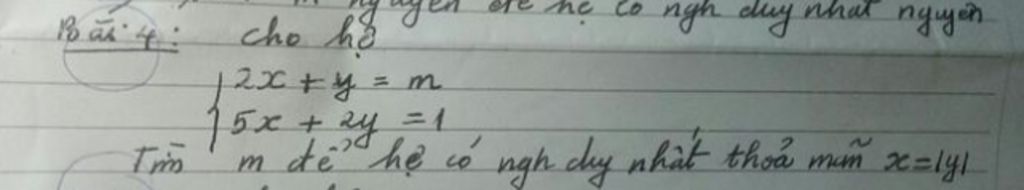 m nguyên để hệ có ngh duy nhất nguyên
Bài 4: cho hệ
2x + y = m
5x + 2y = 1
Tìm m để hệ có ngh duy nhất thoả mãn x=|y|